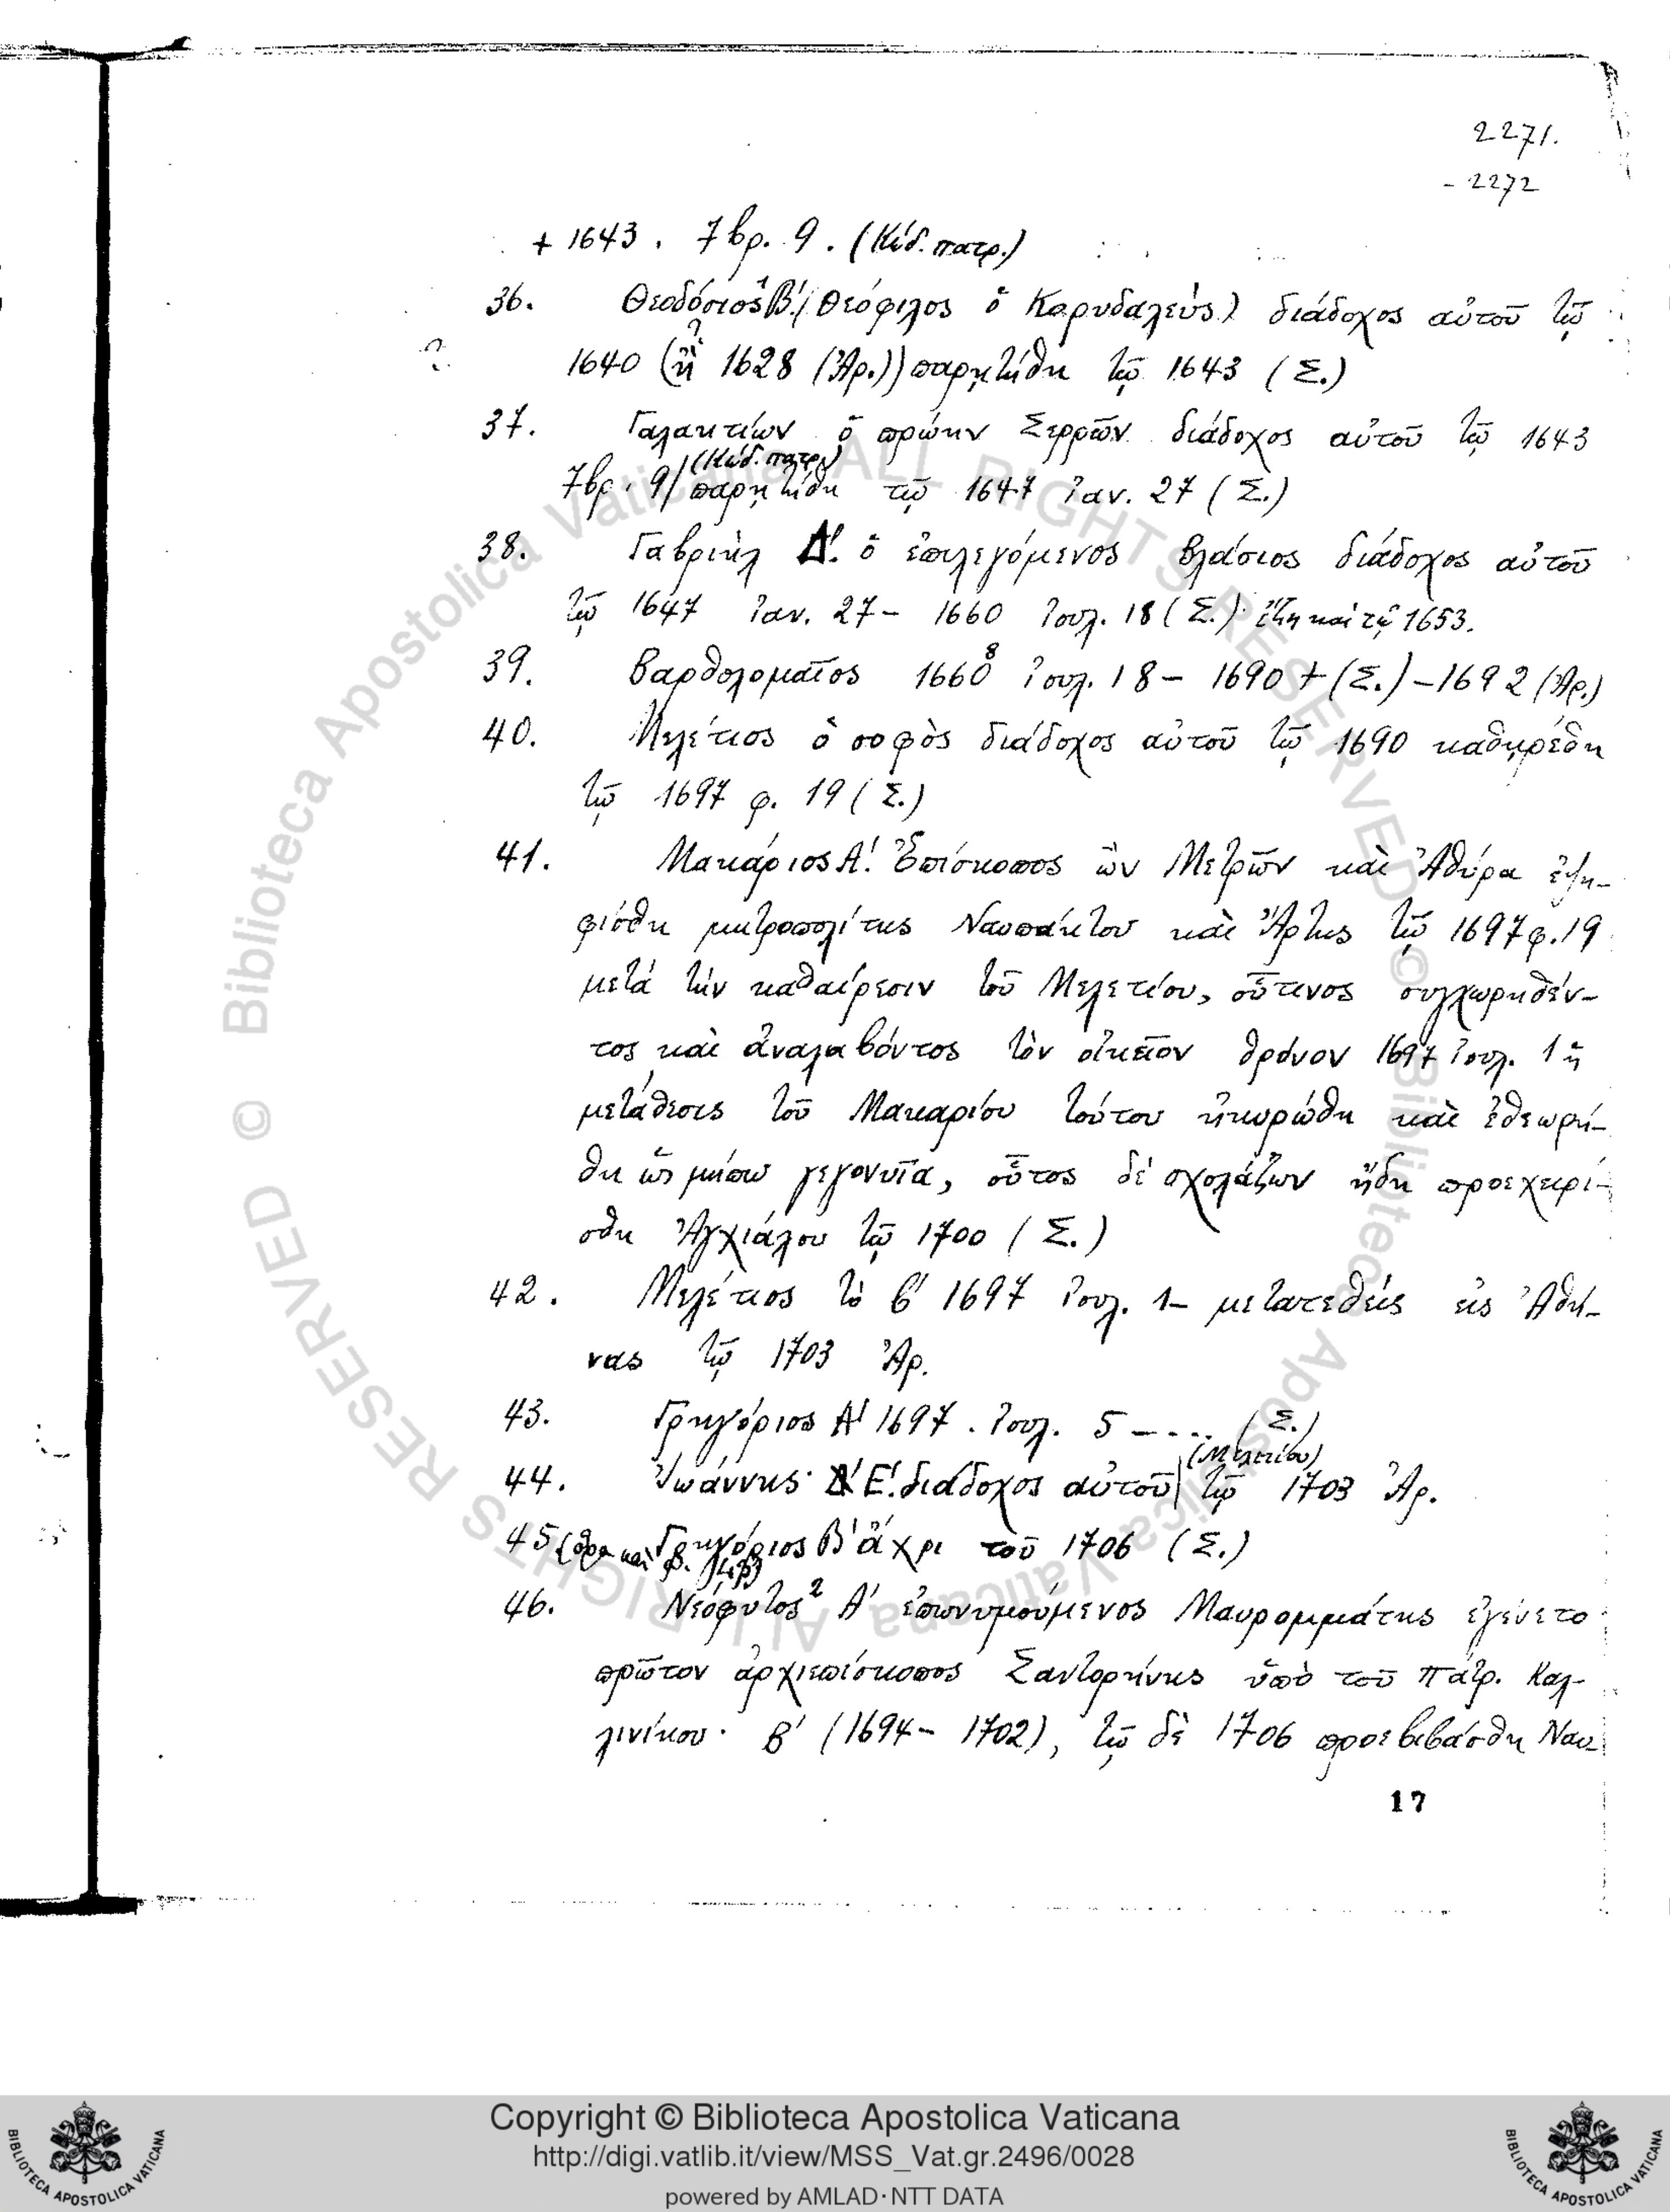 2271.
- 2272
+ 1643. 7βρ. 9. (Κώδ. πατρ.)
36. Θεοδόσιος¹ Β'. (Θεόφιλος ὁ Κορυδαλεὺς) διάδοχος αὐτοῦ τῷ
? 1640 (ἢ 1628 (Ἀρ.)) παρῃτήθη τῷ 1643 (Σ.)
37. Γαλακτίων ὁ πρώην Σερρῶν διάδοχος αὐτοῦ τῷ 1643
7βρ. 9/ (Κώδ. πατρ.) παρῃτήθη τῷ 1647 Ἰαν. 27 (Σ.)
38. Γαβριὴλ Δ'. ὁ ἐπιλεγόμενος Βλάσιος διάδοχος αὐτοῦ
τῷ 1647 Ἰαν. 27 – 1660 Ἰουλ. 18 (Σ.) ἔζη καὶ τῷ 1653.
39. Βαρθολομαῖος 1660 8 Ἰουλ. 18 – 1690 + (Σ.) – 1692 (Ἀρ.)
40. Μελέτιος ὁ σοφὸς διάδοχος αὐτοῦ τῷ 1690 καθῃρέθη
τῷ 1697 φ. 19 (Σ.)
41. Μακάριος Α'. Ἐπίσκοπος ὢν Μετρῶν καὶ Ἀθύρα ἐψη-
φίσθη μητροπολίτης Ναυπάκτου καὶ Ἄρτης τῷ 1697 φ. 19
μετά τὴν καθαίρεσιν τοῦ Μελετίου, οὗτινος συγχωρηθέν-
τος καὶ ἀναλαβόντος τὸν οἰκεῖον θρόνον 1697 Ἰουλ. 1 ἡ
μετάθεσις τοῦ Μακαρίου τούτου ἠκυρώθη καὶ ἐθεωρή-
θη ὡς μήπω γεγονυῖα, οὗτος δέ σχολάζων ἤδη προεχειρί-
σθη Ἀγχιάλου τῷ 1700 (Σ.)
42. Μελέτιος τὸ β' 1697 Ἰουλ. 1 – μετατεθείς εἰς Ἀθή-
νας τῷ 1703 Ἀρ.
43. Γρηγόριος Α' 1697. Ἰουλ. 5 – ... (Σ.)
44. Ἰωάννης Δ' Ε'. διάδοχος αὐτοῦ (Μελετίου) τῷ 1703 Ἀρ.
45 Γρηγόριος Β' ἄχρι τοῦ 1706 (Σ.)
46. Νεόφυτος² Α' ἐπονυμούμενος Μαυρομμάτης ἐγένετο
πρῶτον ἀρχιεπίσκοπος Σαντορήνης ὑπὸ τοῦ πατρ. Καλ-
λινίκου Β' (1694 – 1702), τῷ δὲ 1706 προεβιβάσθη Ναυ
17
Copyright © Biblioteca Apostolica Vaticana
http://digi.vatlib.it/view/MSS_Vat.gr.2496/0028
powered by AMLAD·NTT DATA
BIBLIOTECA APOSTOLICA VATICANA
BIBLIOTECA APOSTOLICA VATICANA
© Biblioteca Apostolica Vaticana ALL RIGHTS RESERVED
© Biblioteca Apostolica Vaticana ALL RIGHTS RESERVED